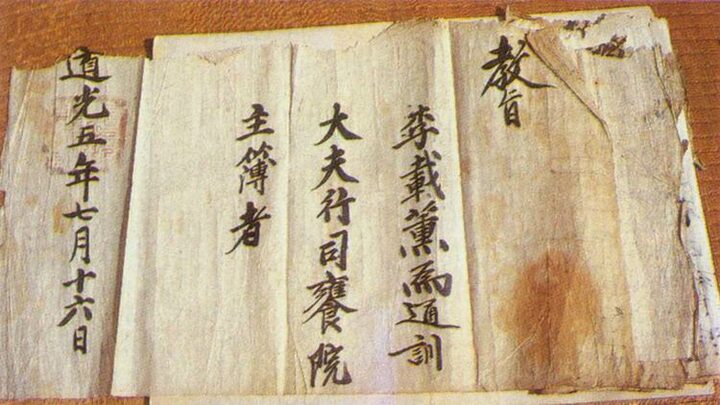 教旨
李載薰爲通訓
大夫行司饔院
主簿者
道光五年七月十六日